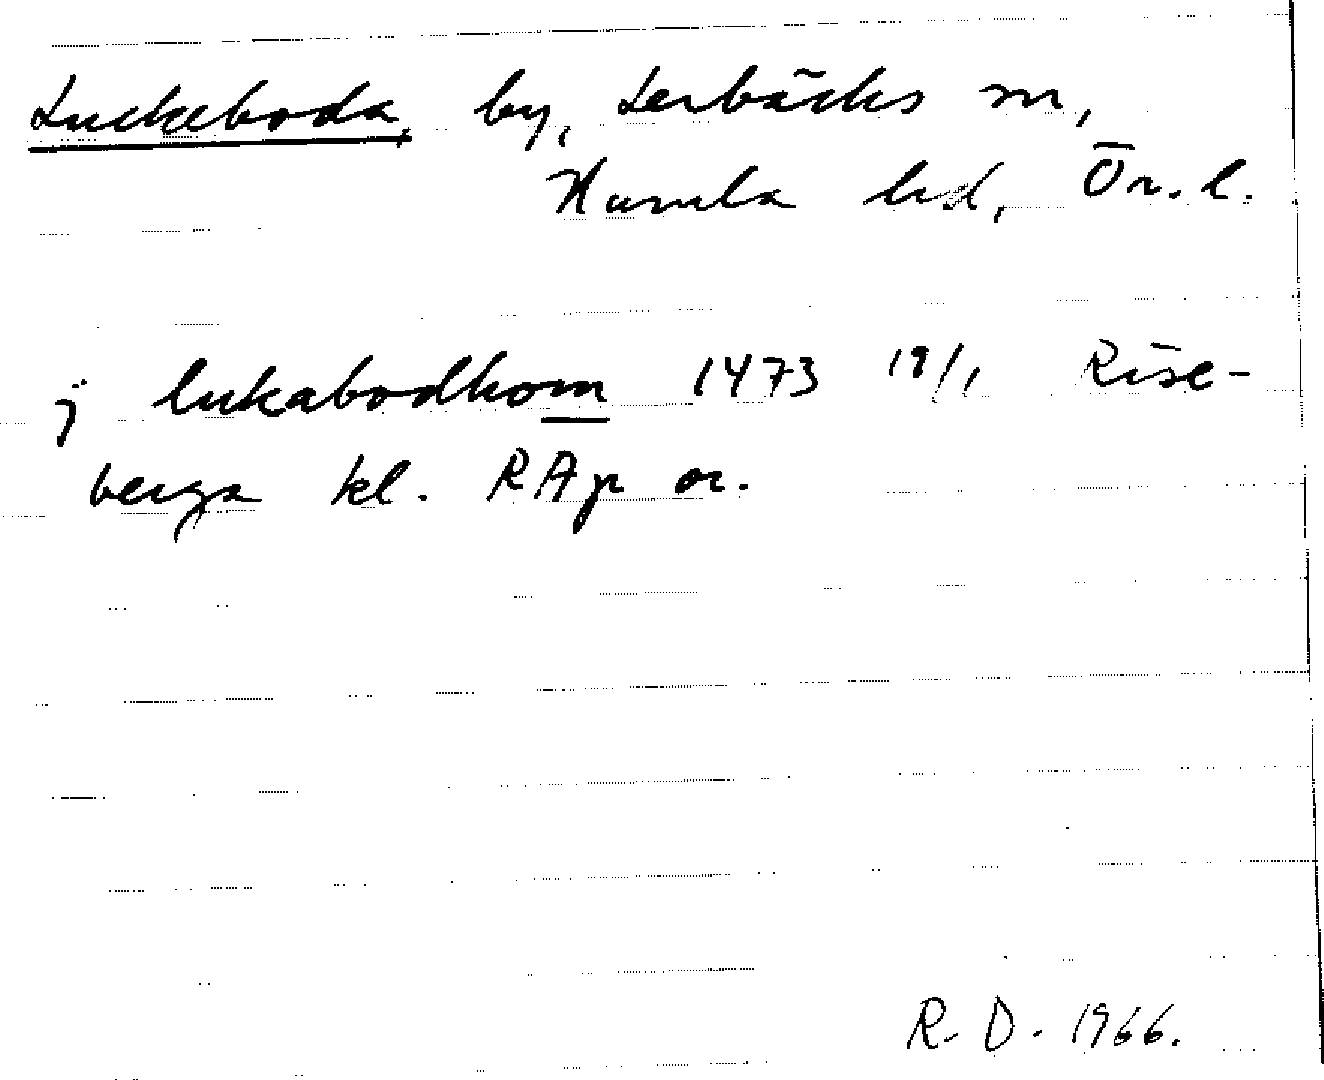 Luckeboda, by, Lerbäcks sn,
Kumla hd, Ör. l.
j lukabodhom 1473 19/1 Rise-
berga kl. RAp or.
R. D. 1966.